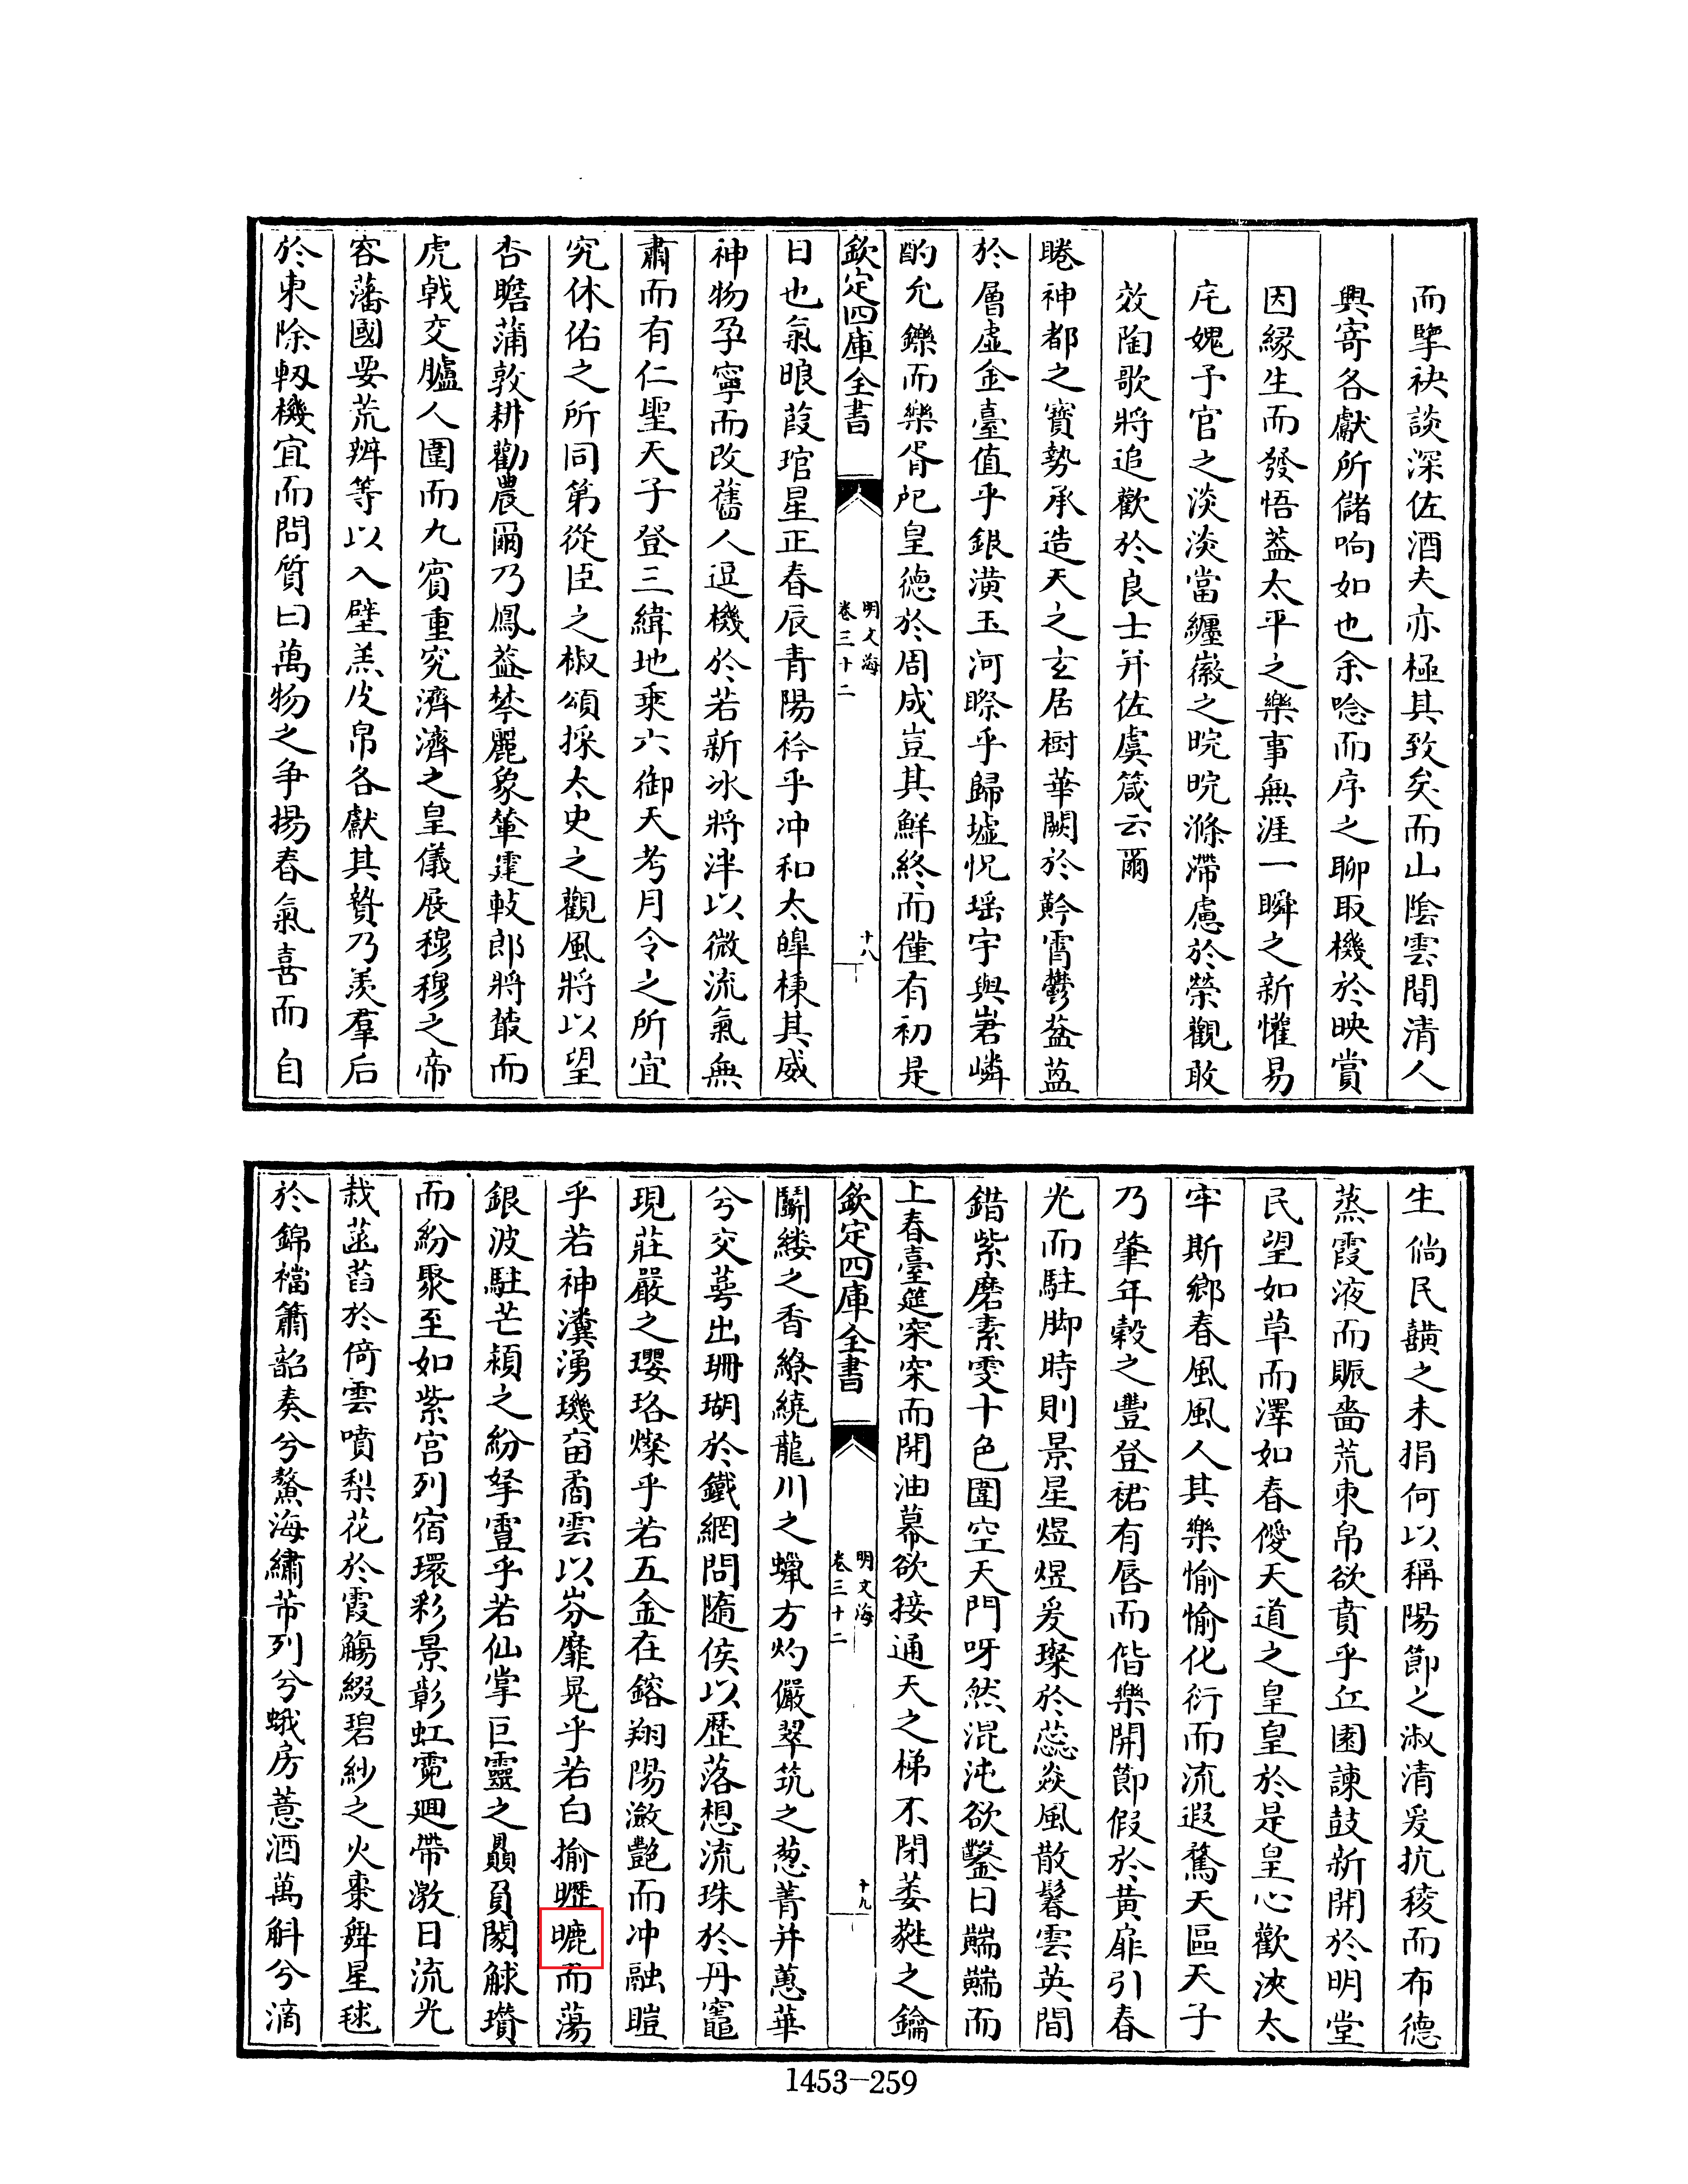 而擘袂談深佐酒夫亦極其致矣而山隂雲間清人
興寄各獻所儲响如也余唸而序之聊取機於映賞
因緣生而發悟葢太平之樂事無涯一瞬之新懽易
庀媿予官之淡淡當纏徽之晥晥滌滯慮於榮觀敢
效陶歌將追歡於良士并佐虞箴云爾
睠神都之寳勢承造天之玄居樹華闕於黅霄鬱葢藍
於層虛金臺值乎銀潢玉河睽乎歸墟怳瑶宇與峉嶙
酌允鑠而樂胥祀皇德於周成豈其鮮終而僅有初是
欽定四庫全書
明文海
卷三十二
十八
日也氣㫰葭琯星正春辰青陽衿乎冲和太皥棟其威
神物孕寧而改舊人逗機於若新冰將泮以微流氣無
肅而有仁聖天子登三緯地乘六御天考月令之所宜
究休佑之所同第從臣之椒頌採太史之觀風將以望
杏瞻蒲敦耕勸農爾乃鳳葢棽麗象輦霆㪣郎將鼓而
虎戟交臚人圍而九賓重究濟濟之皇儀展穆穆之帝
容藩國要荒辨等以入壁羔皮帛各獻其贄乃羨羣后
於東除軔機宜而問質曰萬物之争揚春氣喜而自
生倘民囏之未捐何以稱陽節之淑清爰抗稜而布德
蒸霞液而賑嗇荒束帛欲賁乎丘園諫鼓新開於明堂
民望如草而澤如春僾天道之皇皇於是皇心歡浹太
牢斯鄉春風風人其樂愉愉化衍而流遐騖天區天子
乃肇年榖之豐登裙有唇而偕樂開節假於黃扉引春
光而駐脚時則景星煜煜爰璨於蕊焱風散鬈雲英間
錯紫磨素雯十色圍空天門呀然混沌欲鑿日黼黼而
上春臺筵穼穼而開油幕欲接通天之梯不閉萎蕤之鑰
欽定四庫全書
明文海
卷三十二
十九
鬭縷之香繚繞龍川之蠟方灼儼翠筑之葱菁并蕙華
兮交蕚出珊瑚於鐵網問隨侯以歴落想流珠於丹竈
現莊嚴之瓔珞燦乎若五金在鎔翔陽激艷而冲融暟
乎若神瀵湧璣畜矞雲以岔靡晃乎若白揄㬢㬈而蕩
銀波駐芒潁之紛拏霻乎若仙掌巨靈之贔屓闋觩瓚
而紛聚至如紫宫列宿環彩景彰虹霓廻帶激日流光
栽菡萏於倚雲噴梨花於霞觴綴碧紗之火棗舞星毬
於錦襠簫韶奏兮鰲海繡芾列兮蛾房薏酒萬斛兮滴
1453-259